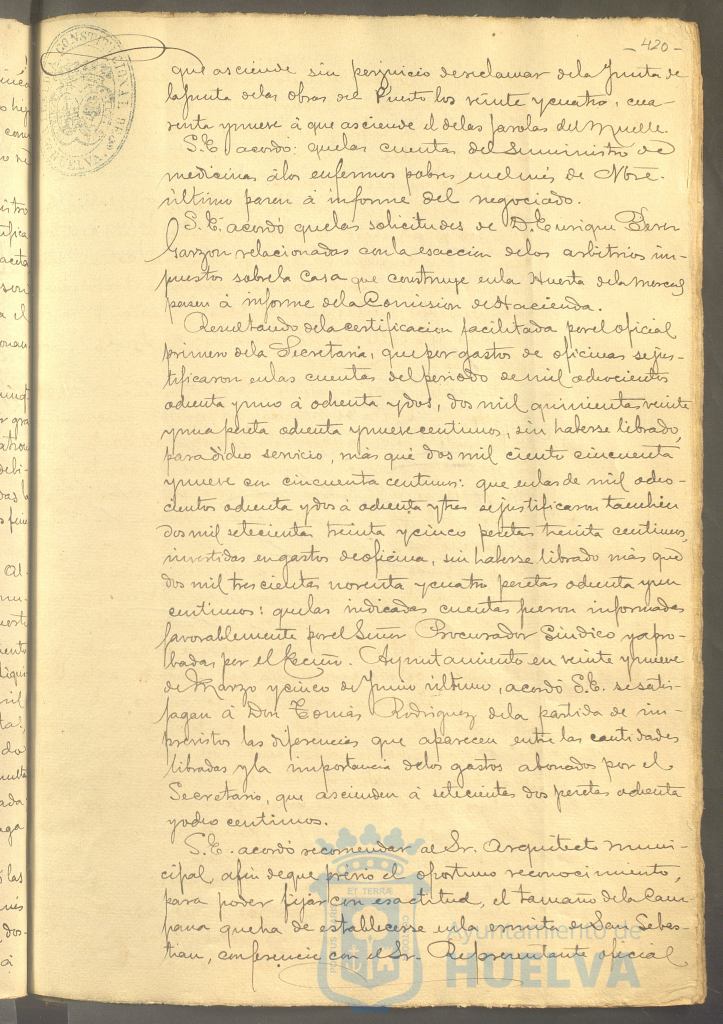 - 420 -
que asciende sin perjuicio de reclamar de la Junta de
la Junta de las obras del Puerto los veinte y cuatro, cua-
renta y nueve á que asciende el de las farolas del Muelle.
S.E. acordó: que las cuentas del suministro de
medicinas á los enfermos pobres en el mes de Nbre.
último pasen á informe del negociado.
S.E. acordó que las solicitudes de D. Enrique Perez
Garzon relacionadas con la esaccion de los arbitrios im-
puestos sobre la casa que construye en la Huerta de la Merced
pasen á informe de la Comision de Hacienda.
Resultando de la certificacion facilitada por el oficial
primero de la Secretaria, que por gastos de oficinas se jus-
tificaron en las cuentas del periodo de mil ochocientos
ochenta y uno á ochenta y dos, dos mil quinientas veinte
y una peseta ochenta y nueve centimos, sin haberse librado,
para dicho servicio, más que dos mil ciento cincuenta
y nueve con cincuenta centimos: que en las de mil ocho-
cientos ochenta y dos á ochenta y tres se justificaron tambien
dos mil setecientas treinta y cinco pesetas treinta centimos,
invertidas en gastos de oficina, sin haberse librado más que
dos mil trescientas noventa y cuatro pesetas ochenta y un
centimos: que las indicadas cuentas fueron informadas
favorablemente por el Señor Procurador Sindico y apro-
badas por el Excmo. Ayuntamiento en veinte y nueve
de Marzo y cinco de Junio último, acordó S.E. se satis-
fagan á Don Tomás Rodriguez de la partida de im-
previstos las diferencias que aparecen entre las cantidades
libradas y la importancia de los gastos abonados por el
Secretario, que ascienden á setecientas dos pesetas ochenta
y ocho centimos.
S.E. acordó recomendar al Sr. Arquitecto muni-
cipal, afin de que previo el oportuno reconocimiento,
para poder fijar con esactitud, el tamaño de la Cam-
pana que ha de establecerse en la ermita de San Sebas-
tian, conferencie con el Sr. Representante oficial
Ayuntamiento de
HUELVA